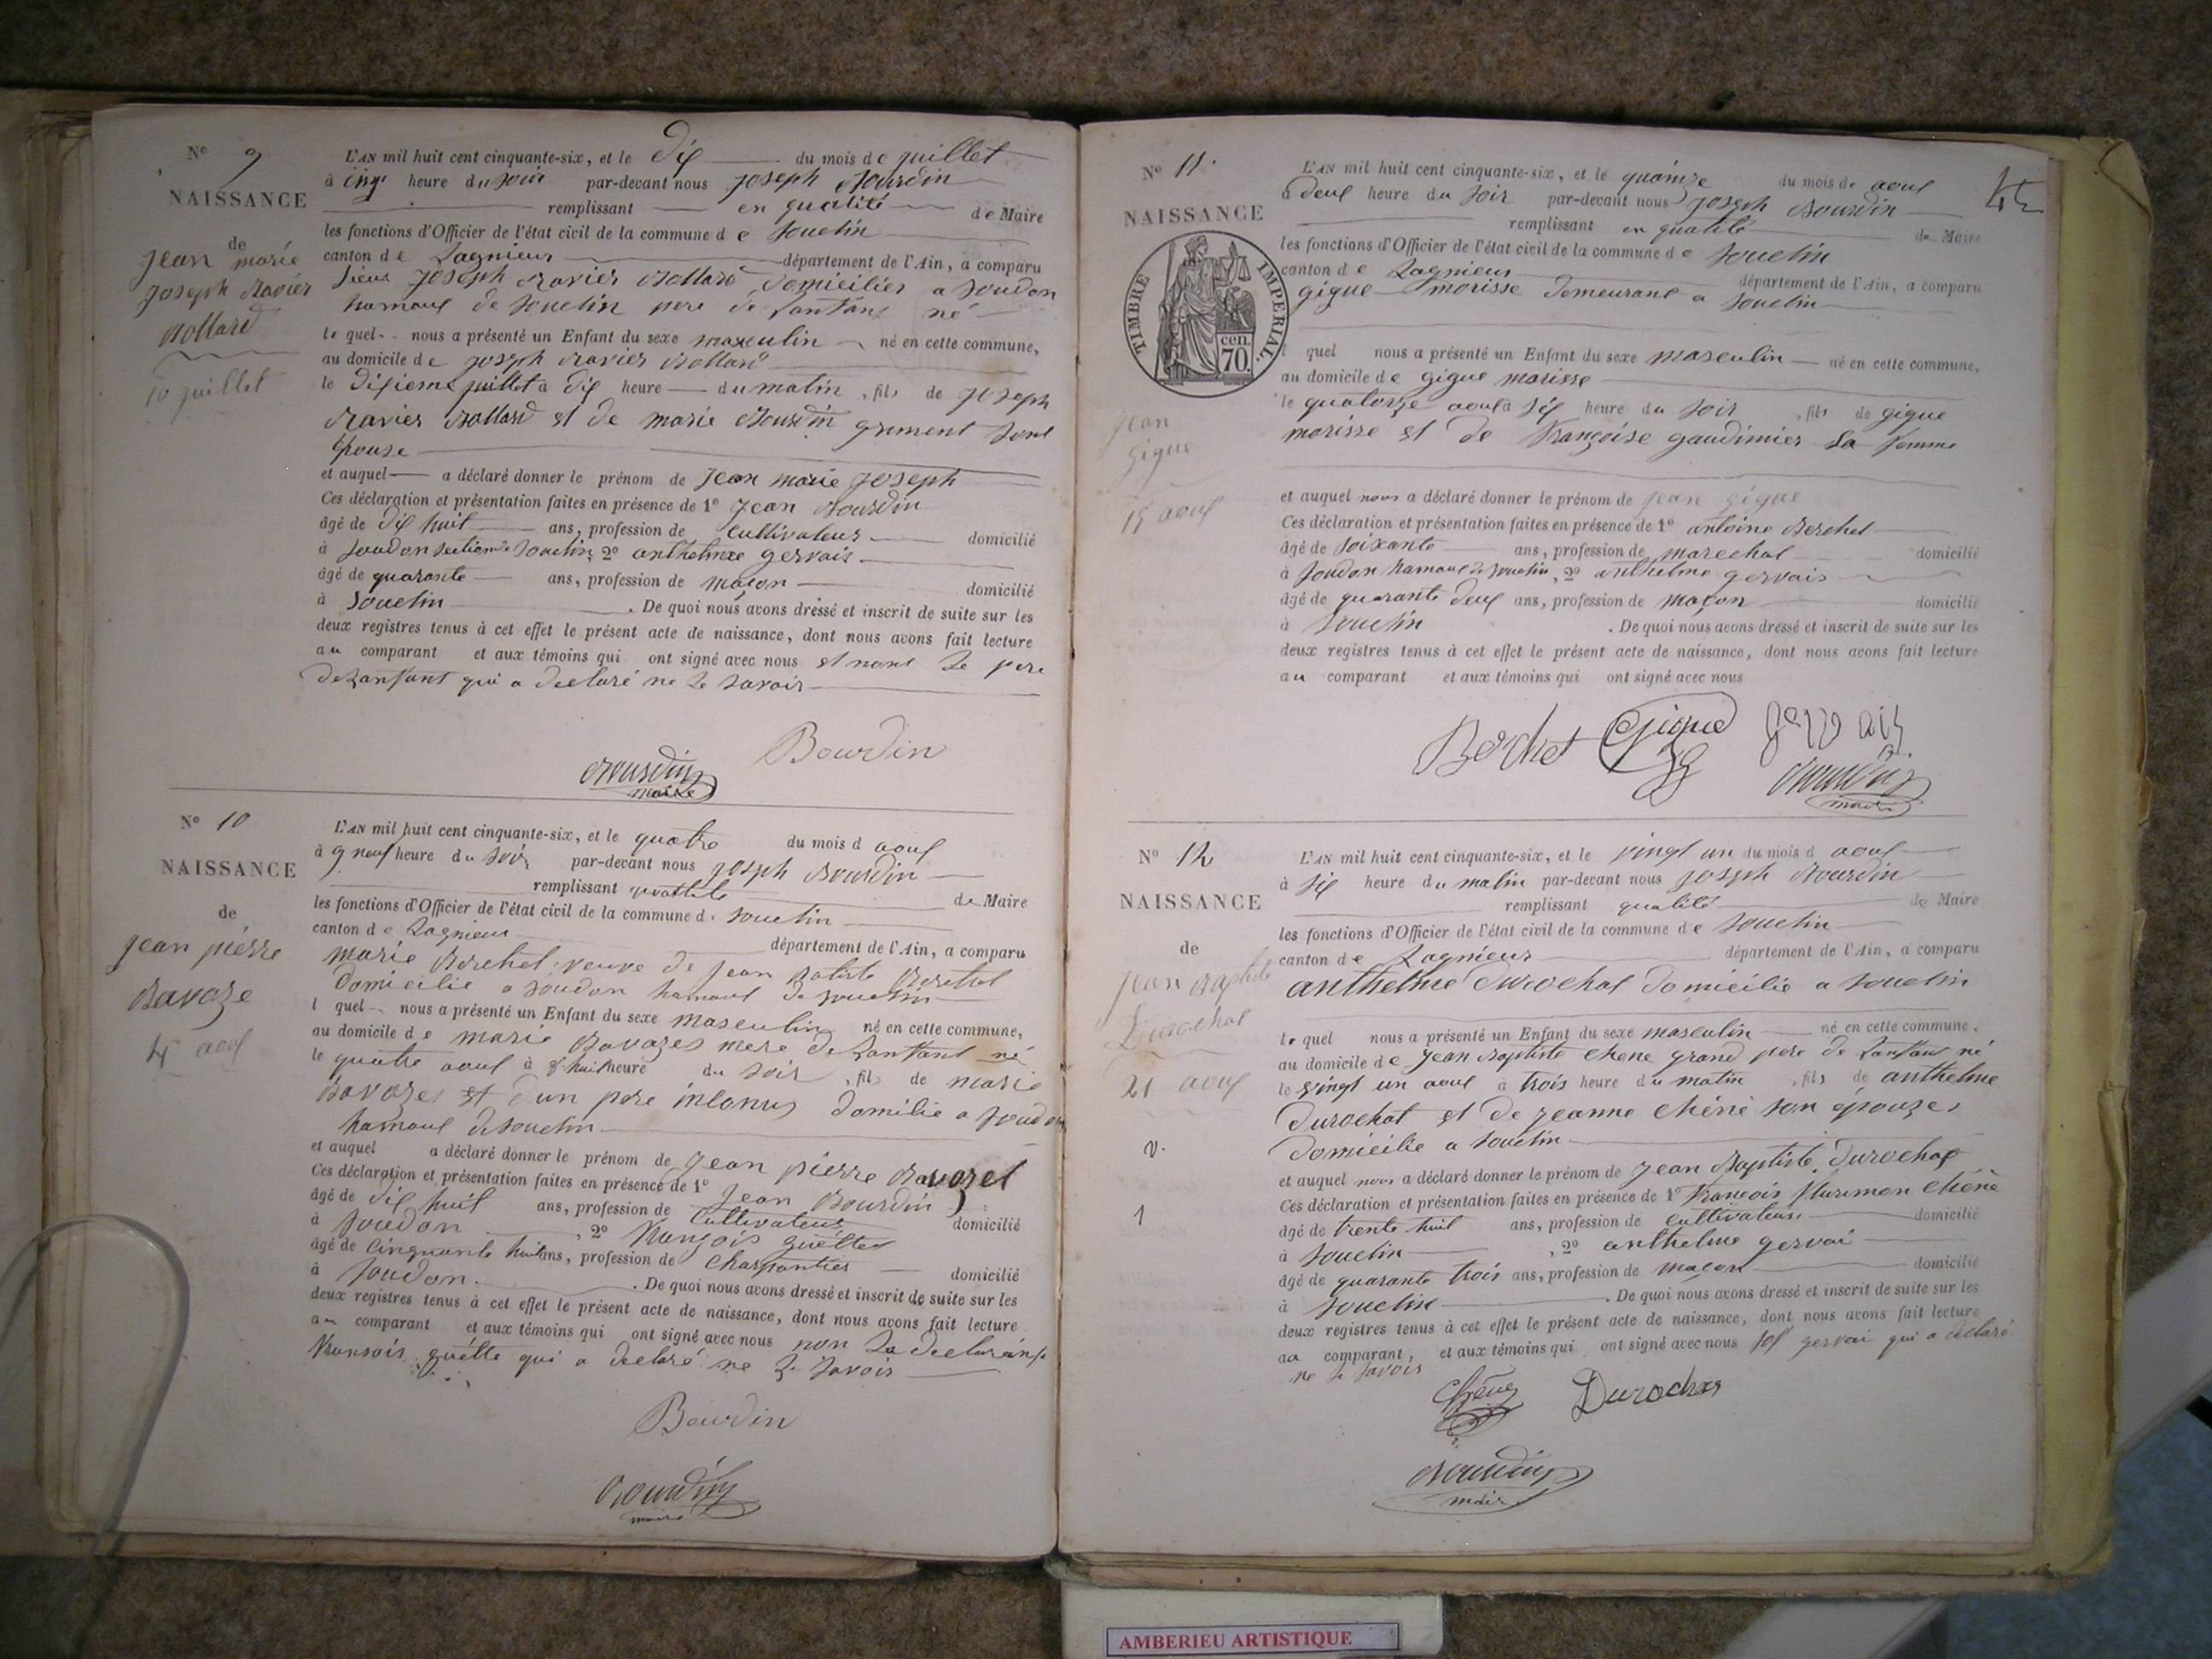 N° 9
NAISSANCE
de
jean marie
joseph Ravier
Bollard
10 juillet
L'AN mil huit cent cinquante-six, et le Dix du mois de juillet
à cinq heure du soir par-devant nous joseph Bourdin
remplissant en qualité de Maire
les fonctions d'Officier de l'état civil de la commune de souclin
canton de Lagnieu département de l'Ain, a comparu
sieur joseph Ravier Bollard domicilier a soudon
hamaux de souclin pere de Lanfant né
le quel nous a présenté un Enfant du sexe masculin né en cette commune,
au domicile de joseph Ravier Bollard
le Dixieme juillet à dix heure du matin, fils de joseph
Ravier Bollard et de marie Bourdin sont
Epouse
et auquel a déclaré donner le prénom de jean marie joseph
Ces déclaration et présentation faites en présence de 1° jean Bourdin
âgé de dix huit ans, profession de cultivateur domicilié
à soudon section de souclin, 2° anthelme gervais
âgé de quarante ans, profession de maçon domicilié
à souclin. De quoi nous avons dressé et inscrit de suite sur les
deux registres tenus à cet effet le présent acte de naissance, dont nous avons fait lecture
au comparant et aux témoins qui ont signé avec nous et nont le pere
de Lanfant qui a declaré ne le savoir
Bourdin
Bourdin
maire
N° 10
NAISSANCE
de
jean pierre
Ravoze
4 aout
L'AN mil huit cent cinquante-six, et le quatre du mois d aout
à 9 neuf heure du soir par-devant nous joseph Bourdin
remplissant quallité de Maire
les fonctions d'Officier de l'état civil de la commune de souclin
canton de Lagnieu département de l'Ain, a comparu
marie Berchet veuve de jean Batiste
domicilie a soudon hamaux de souclin
l quel nous a présenté un Enfant du sexe masculin né en cette commune,
au domicile de marie Ravozes mere de Lanfant né
le quatre aout à 8 huit heure du soir, fils de marie
Ravozes et d'un pere inconnus domilié a soudon
hamaux de souclin
et auquel a déclaré donner le prénom de jean pierre Ravozet
Ces déclaration et présentation faites en présence de 1° jean Bourdin
âgé de dix huit ans, profession de cultivateur domicilié
à soudon, 2° François guettes
âgé de cinquante huit ans, profession de charpantier domicilié
à soudon. De quoi nous avons dressé et inscrit de suite sur les
deux registres tenus à cet effet le présent acte de naissance, dont nous avons fait lecture
au comparant et aux témoins qui ont signé avec nous non La declarante
Fransois guette qui a declaré ne le savoir
Bourdin
Bourdin
maire
N° 11.
NAISSANCE
TIMBRE IMPERIAL.
cen.
70.
jean
gigue
15 aout
L'AN mil huit cent cinquante-six, et le quainze du mois de aout
à deux heure du soir par-devant nous joseph Bourdin
remplissant en qualité de Maire
les fonctions d'Officier de l'état civil de la commune de souclin
canton de Lagnieu département de l'Ain, a comparu
gigue morisse demeurant a souclin
l quel nous a présenté un Enfant du sexe masculin né en cette commune,
au domicile de gigue morisse
le quatorze aout à six heure du soir, fils de gigue
morisse et de Françoise gaudimier La femme
et auquel nous a déclaré donner le prénom de jean gigue
Ces déclaration et présentation faites en présence de 1° antoine Berchet
âgé de soixante ans, profession de marechal domicilié
à soudon hamaux de souclin, 2° anthelme gervais
âgé de quarante deux ans, profession de maçon domicilié
à souclin. De quoi nous avons dressé et inscrit de suite sur les
deux registres tenus à cet effet le présent acte de naissance, dont nous avons fait lecture
au comparant et aux témoins qui ont signé avec nous
Berchet Gigue gervais
Bourdin
maire
N° 12
NAISSANCE
de
jean Baptiste
Durochat
21 aout
v.
1
L'AN mil huit cent cinquante-six, et le vingt un du mois d aout
à six heure du matin par-devant nous joseph Bourdin
remplissant qualité de Maire
les fonctions d'Officier de l'état civil de la commune de souclin
canton de Lagnieur département de l'Ain, a comparu
anthelme Durochat domicilié a souclin
le quel nous a présenté un Enfant du sexe masculin né en cette commune,
au domicile de jean Baptiste chene grand pere de Lanfant né
le vingt un aout à trois heure du matin, fils de anthelme
durochat et de jeanne chéne son épouzes
domicilie a souclin
et auquel nous a déclaré donner le prénom de jean Baptiste durochat
Ces déclaration et présentation faites en présence de 1° François chène
âgé de trente huit ans, profession de cultivateur domicilié
à souclin, 2° anthelme gervai
âgé de quarante trois ans, profession de maçon domicilié
à souclin. De quoi nous avons dressé et inscrit de suite sur les
deux registres tenus à cet effet le présent acte de naissance, dont nous avons fait lecture
au comparant, et aux témoins qui ont signé avec nous sof gervai qui a declaré
ne le savoir
Chêne Durochat
Bourdin
maire
AMBERIEU ARTISTIQUE